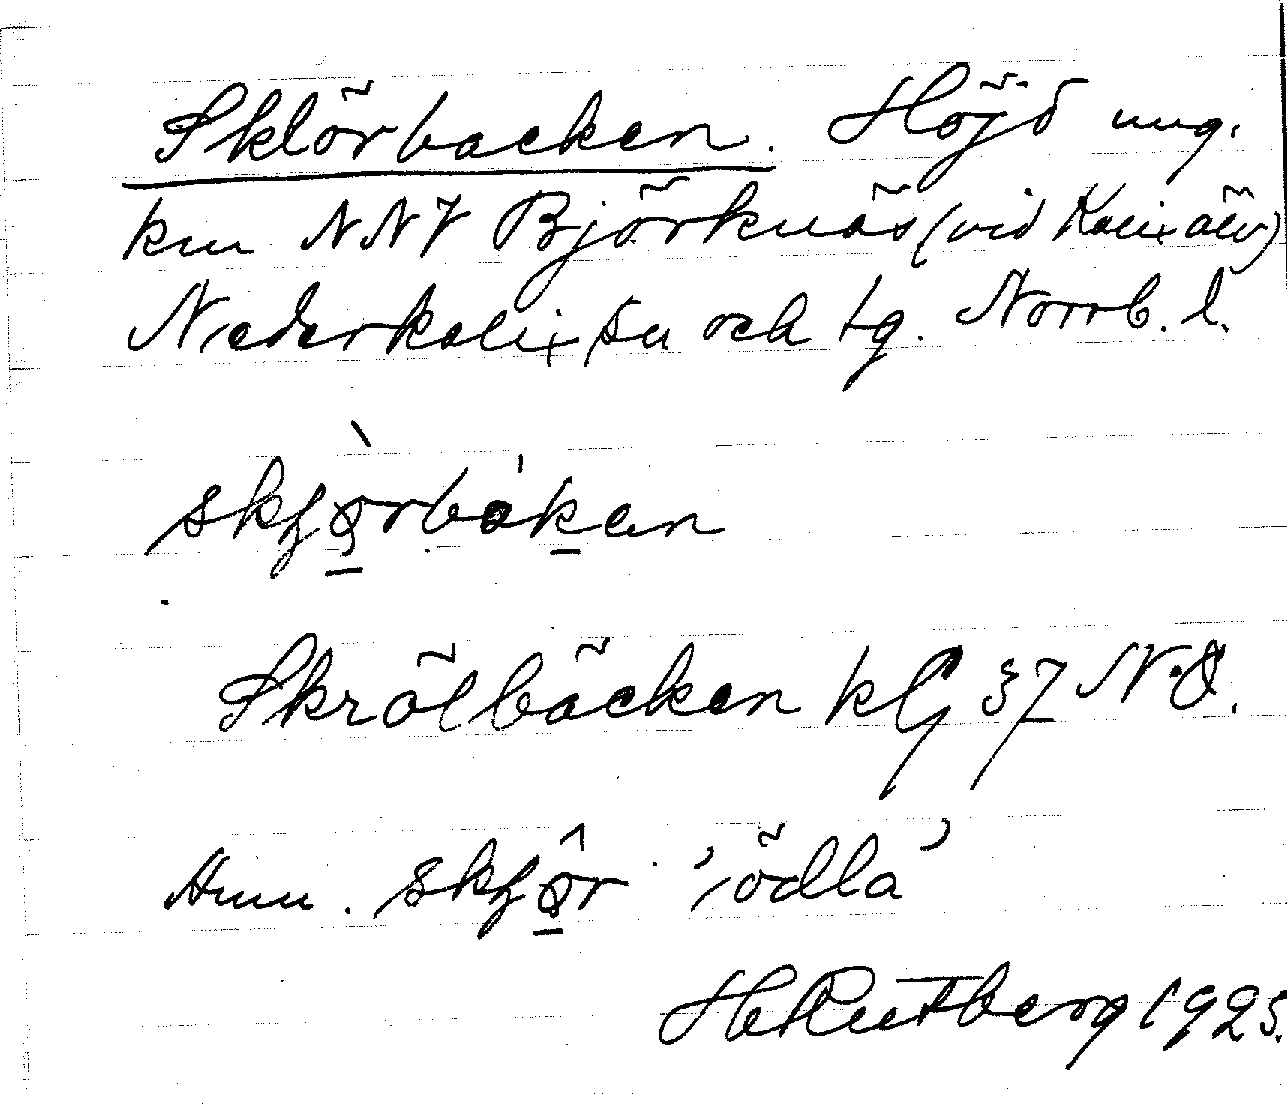 Sklörbacken. Höjd ung.
km NNV Björknäs (vid Kalixälv)
Nederkalix sn och tg. Norrb. l.
Skrölbäcken kG 37 N.O.
Anm. 'ödla'
H Rutberg 1925.